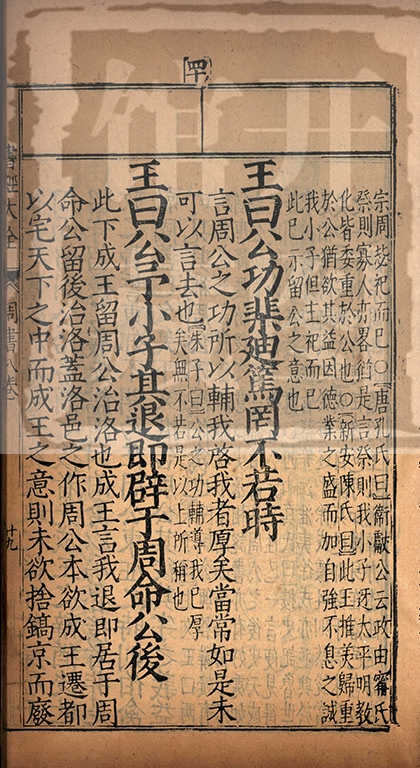 宗周毖祀而已○唐孔氏曰衛獻公云政由甯氏
祭則寡人亦畧猶是言祭則我小子迓太平明教
化皆委重於公也○新安陳氏曰此王推美歸重
於公猶欲其益因德業之盛而加自強不息之誠
我小子但主祀而已
此已示留公之意也
王曰公功棐迪篤罔不若時
言周公之功所以輔我啓我者厚矣當常如是未
可以言去也
朱子曰公之功輔導我已厚
矣無不若是以上所稱也
王曰公予小子其退即辟于周命公後
此下成王留周公治洛也成王言我退即居于周
命公留後治洛蓋洛邑之作周公本欲成王遷都
以宅天下之中而成王之意則未欲捨鎬京而廢
書經大全
周書八卷
十九